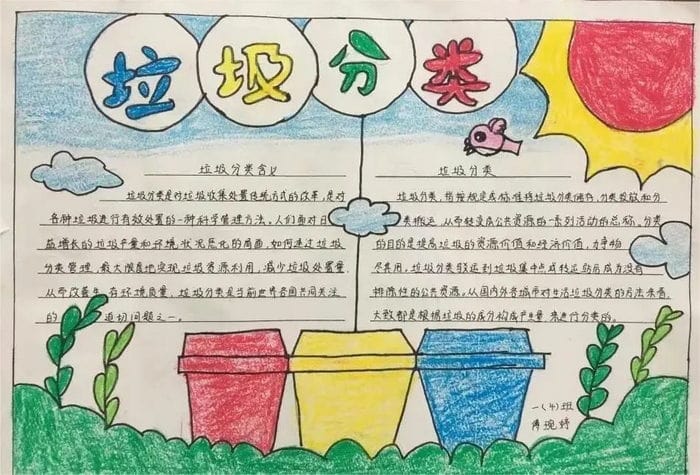 垃圾分类
垃圾分类含义
垃圾分类是对垃圾收集处置传统方式的改革,是对
各种垃圾进行有效处置的一种科学管理方法。人们面对日
益增长的垃圾产量和环境状况恶化的局面,如何通过垃圾
分类管理,最大限度地实现垃圾资源利用,减少垃圾处置量,
从而改善生存环境质量,垃圾分类是当前世界各国共同关注
的迫切问题之一。
垃圾分类
垃圾分类,指按规定或标准将垃圾分类储存,分类投放和分
类搬运,从而转变成公共资源的一系列活动的总称。分类
的目的是提高垃圾的资源价值和经济价值,力争物
尽其用。垃圾分类驳运到垃圾集中点或转运站后成为没有
排除性的公共资源。从国内外各城市对生活垃圾分类的方法来看,
大致都是根据垃圾的成分构成产生量来进行分类的。
一(4)班